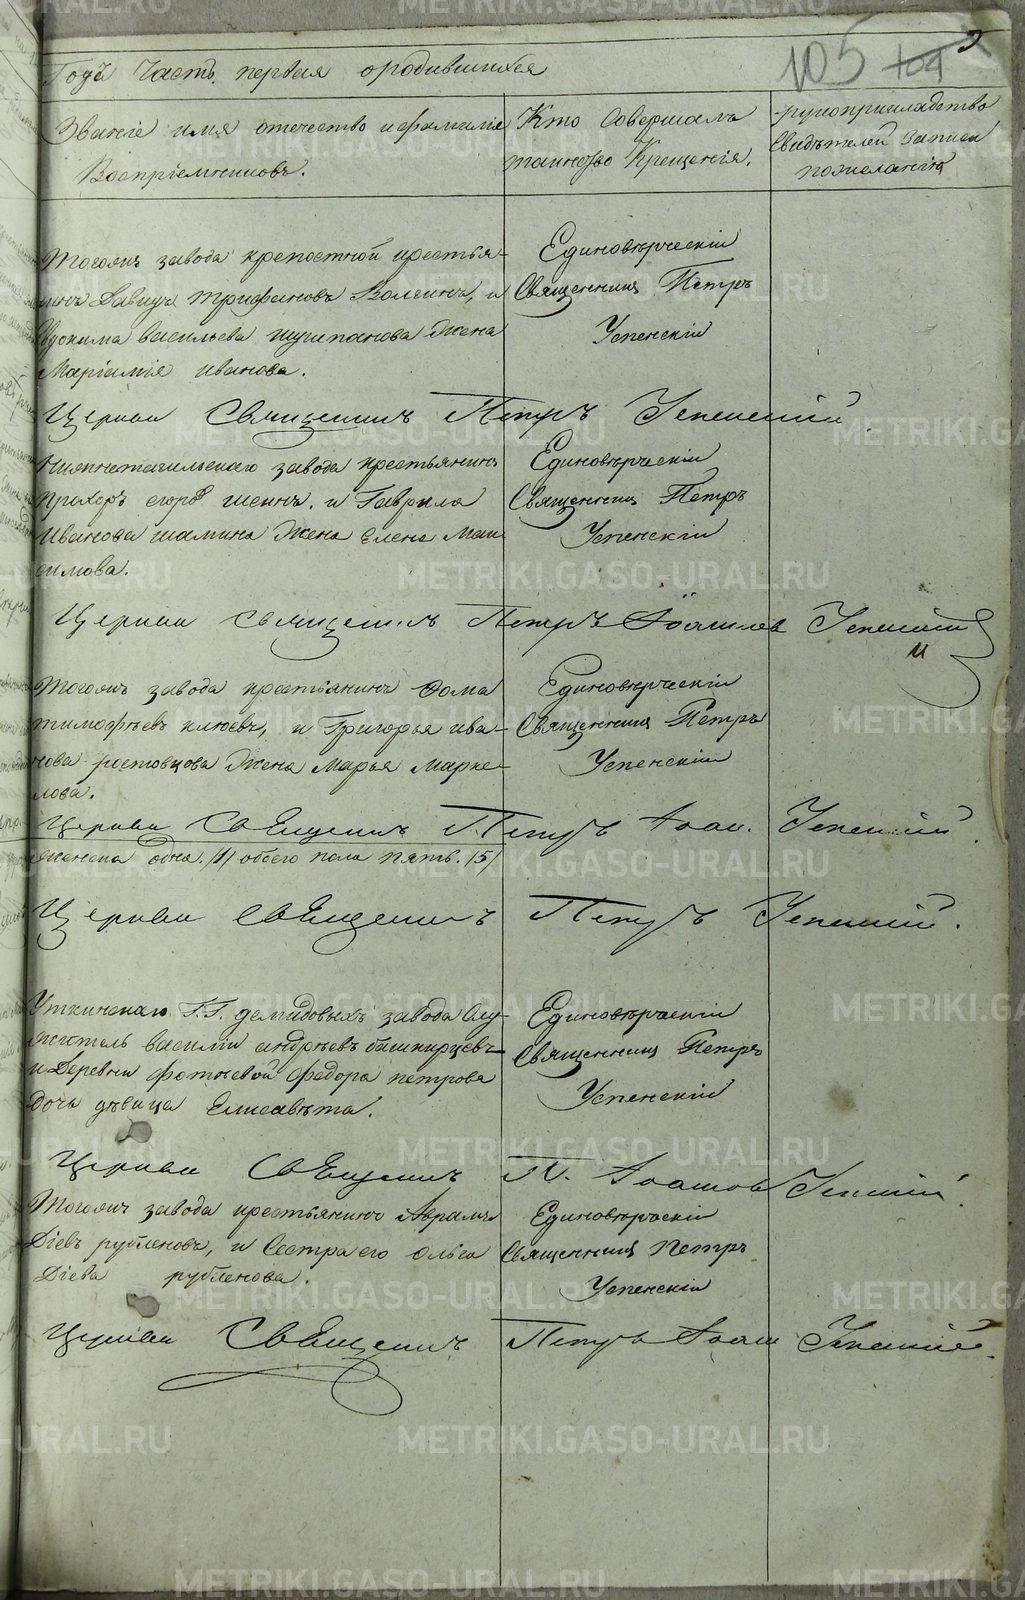 105 104 9
Годъ Часть первая ородившихся
Званіе имя отечество ифамилія
Воспріемниковъ.
Кто Совершалъ
таинство Крещенія.
Рукоприкладство
Свидѣтелей записи
пожеланію
Тогожъ завода крепостной крестья-
нинъ Давидъ Трифановъ и
Евдокима васильева Жена
Маріамія иванова.
Единовѣрческій
Священникъ Петръ
Успенскій
Церкви Священникъ Петръ Успенский.
Нижнетагильскаго завода крестьянинъ
Прохоръ егоровъ шеинъ. и Гаврила
Иванова шамина Жена елена Мак
симова.
Единовѣрческій
Священникъ Петръ
Успенскій
Церкви Священникъ Петръ Успенский
Тогожъ завода крестьянинъ Фома
тимофѣевъ клюевъ, и Григорья ива-
нова ростовцова Жена Марья Марке-
лова.
Единовѣрческій
Священникъ Петръ
Успенскій
Церкви Священникъ Петръ Успенский
женска одна /1/ обоего пола пять. /5/
Церкви Священникъ Петръ Успенский.
Уткинскаго Г.Г. демидовыхъ завода Слу-
житель василій андрѣевъ башкирцевъ
и Деревни фотѣевой Федора петрова
дочь дѣвица Елисавѣта.
Единовѣрческій
Священникъ Петръ
Успенскій
Церкви Священникъ П. Успенский
Тогожъ завода крестьянинъ Аврамъ
Діевъ рубленовъ, и Сестра его Ольга
Діева рубленова.
Единовѣрческій
Священникъ Петръ
Успенскій
Церкви Священникъ Петръ Успенский.
METRIKI.GASO-URAL.RU